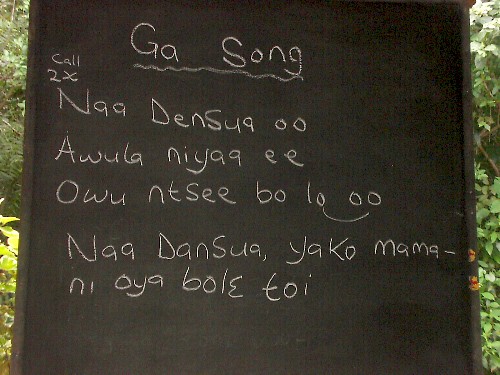 Ga Song
Call
2x
Naa Densua oo
Awula niyaa ee
Owu ntsee bo lo oo
Naa Dansua, yako mama-
ni oya bolɛ toi